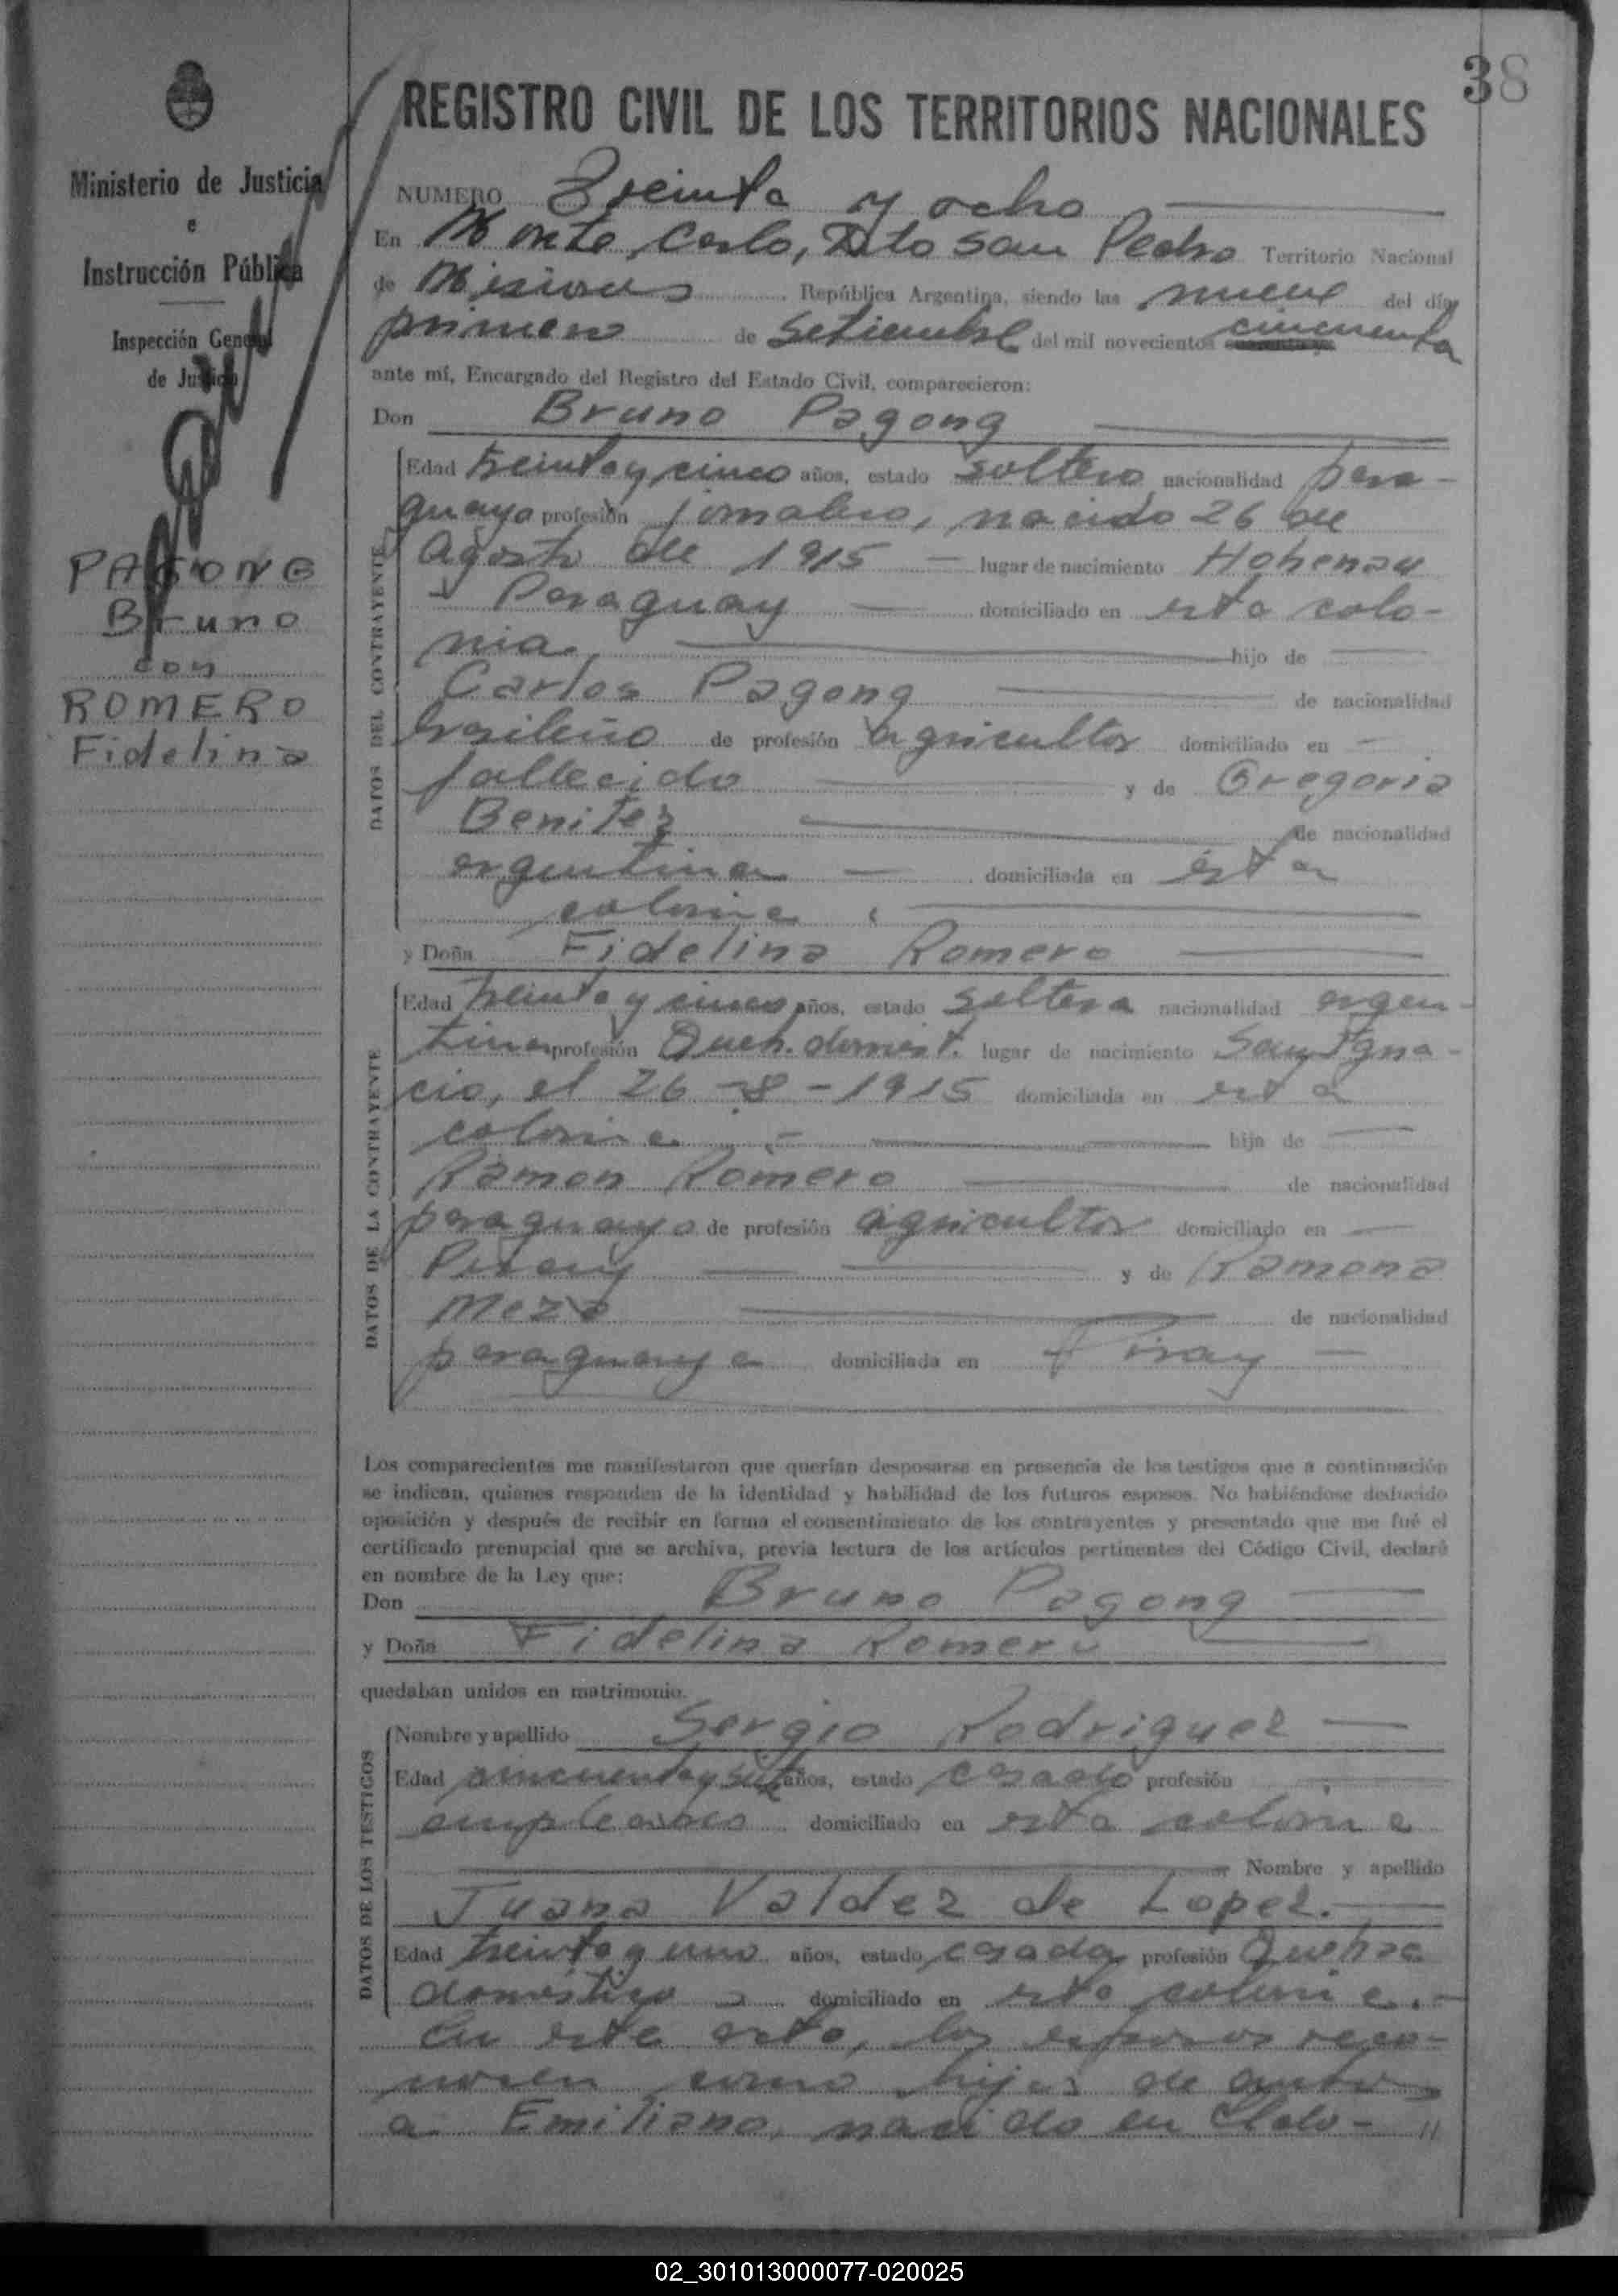 38
REGISTRO CIVIL DE LOS TERRITORIOS NACIONALES
Ministerio de Justicia
e
Instrucción Pública
Inspección General
de Justicia
PAGONG
Bruno
con
ROMERO
Fidelina
NUMERO Treinta y ocho
En Monte Carlo, Dto San Pedro Territorio Nacional
de Misiones República Argentina, siendo las nueve del día
primero de Setiembre del mil novecientos cincuenta
ante mí, Encargado del Registro del Estado Civil, comparecieron:
Don Bruno Pagong
DATOS DEL CONTRAYENTE
Edad treinta y cinco años, estado soltero nacionalidad para-
guaya profesión jornalero, nacido 26 de
Agosto de 1915 — lugar de nacimiento Hohenau
Paraguay — domiciliado en esta colo-
nia. hijo de
Carlos Pagong de nacionalidad
brasileño de profesión agricultor domiciliado en —
fallecido y de Gregoria
Benitez de nacionalidad
argentina — domiciliada en ésta
colonia
y Doña Fidelina Romero
DATOS DE LA CONTRAYENTE
Edad treinta y cinco años, estado soltera nacionalidad argen-
tina profesión Queh. domést. lugar de nacimiento San Igna-
cio, el 26-8-1915 domiciliada en esta
colonia hija de
Ramon Romero de nacionalidad
paraguayo de profesión agricultor domiciliado en —
Piray y de Ramona
Meza de nacionalidad
paraguaya domiciliada en Piray —
Los comparecientes me manifestaron que querían desposarse en presencia de los testigos que a continuación
se indican, quienes responden de la identidad y habilidad de los futuros esposos. No habiéndose deducido
oposición y después de recibir en forma el consentimiento de los contrayentes y presentado que me fué el
certificado prenupcial que se archiva, previa lectura de los artículos pertinentes del Código Civil, declaré
en nombre de la Ley que:
Don Bruno Pagong
y Doña Fidelina Romero
quedaban unidos en matrimonio.
DATOS DE LOS TESTIGOS
Nombre y apellido Sergio Rodriguez —
Edad cincuenta y años, estado casado profesión
empleado domiciliado en esta colonia
Nombre y apellido
Juana Valdez de Lopez.
Edad treinta y uno años, estado casada profesión Quehac.
doméstico domiciliado en esta colonia.-
En este acto, los esposos reco-
nocen como hijos de ambos
a Emiliano, nacido en Eldo- "
02_301013000077-020025